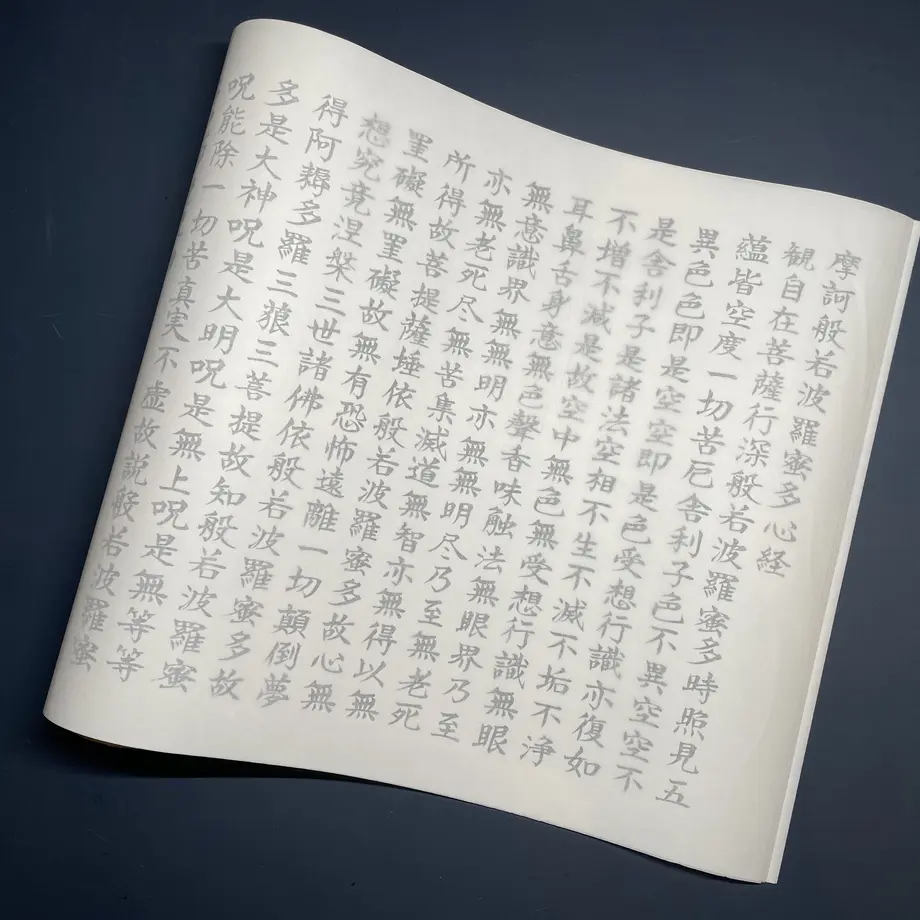 摩訶般若波羅蜜多心経
観自在菩薩行深般若波羅蜜多時照見五
蘊皆空度一切苦厄舎利子色不異空空不
異色色即是空空即是色受想行識亦復如
是舎利子是諸法空相不生不滅不垢不浄
不増不減是故空中無色無受想行識無眼
耳鼻舌身意無色聲香味触法無眼界乃至
無意識界無無明亦無無明尽乃至無老死
亦無老死尽無苦集滅道無智亦無得以無
所得故菩提薩埵依般若波羅蜜多故心無
罣礙無罣礙故無有恐怖遠離一切顛倒夢
想究竟涅槃三世諸佛依般若波羅蜜多故
得阿耨多羅三藐三菩提故知般若波羅蜜
多是大神呪是大明呪是無上呪是無等等
呪能除一切苦真実不虚故説般若波羅蜜